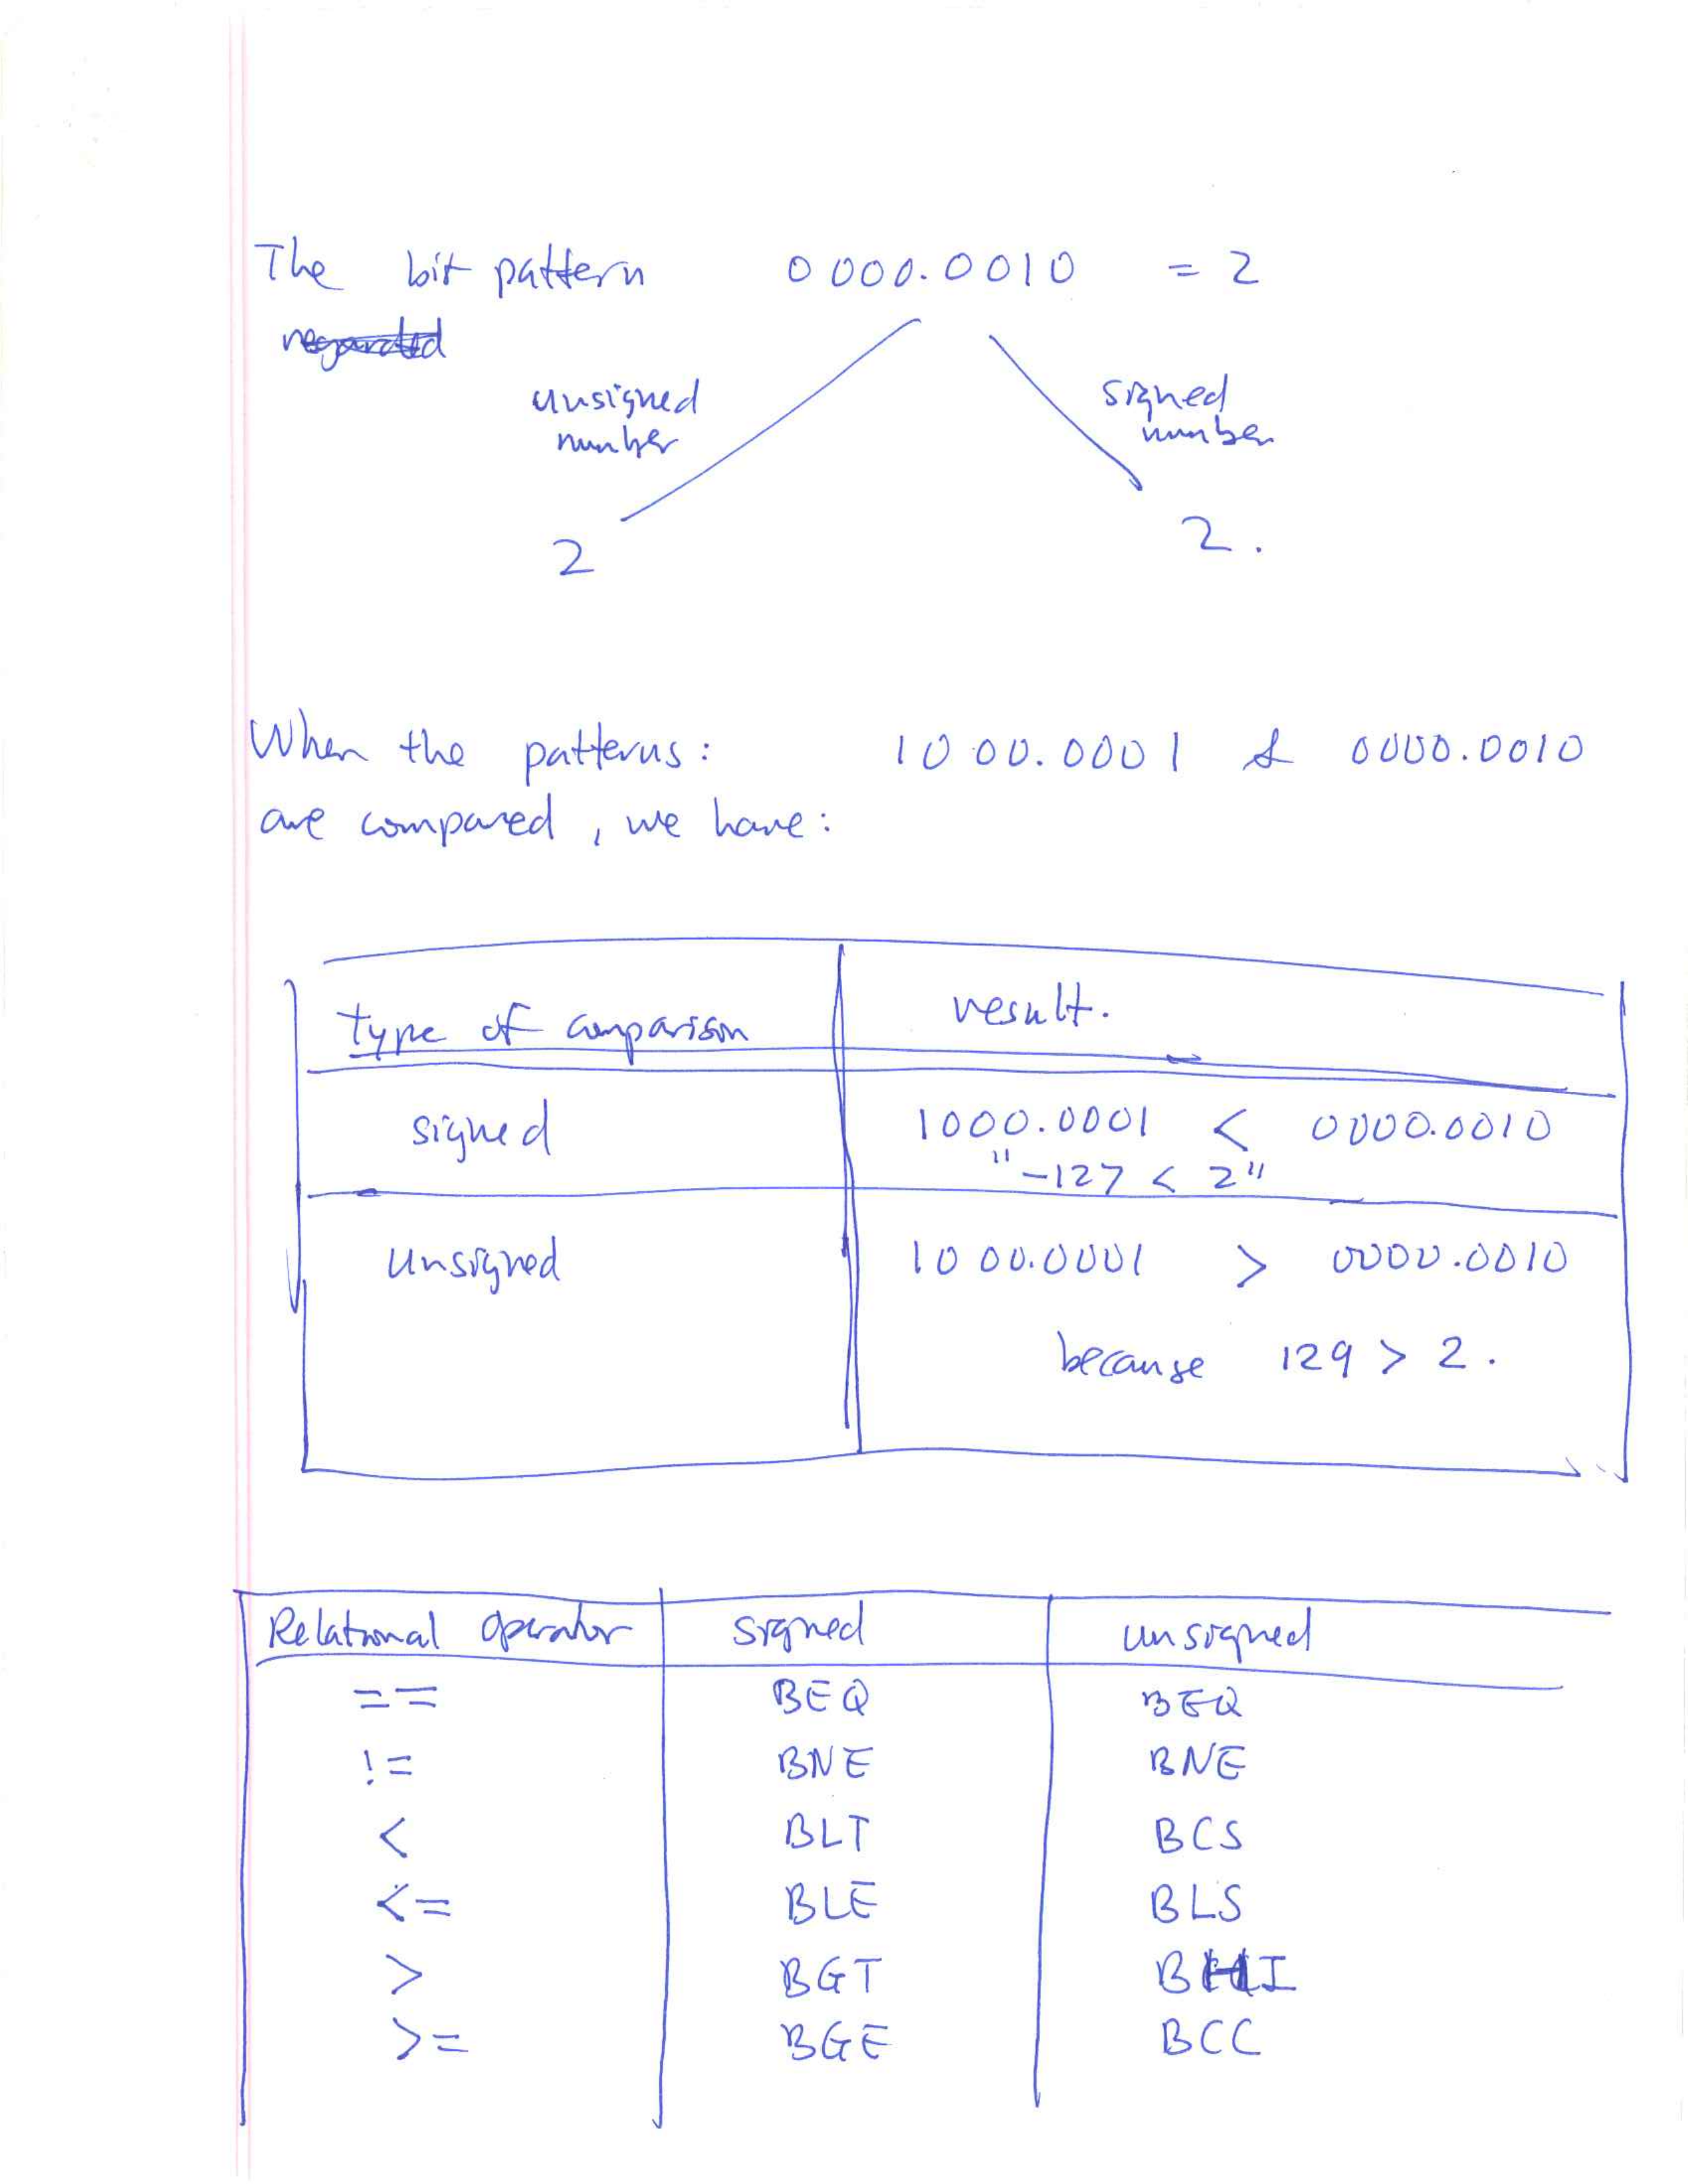 The bit pattern 0000.0010 = 2
regarded
unsigned number
signed number
2
2.
When the patterns: 1000.0001 & 0000.0010
are compared, we have:
type of comparison result.
signed 1000.0001 < 0000.0010
"-127 < 2"
unsigned 1000.0001 > 0000.0010
because 129 > 2.
Relational operator signed unsigned
== BEQ BEQ
!= BNE BNE
< BLT BCS
<= BLE BLS
> BGT BHI
>= BGE BCC